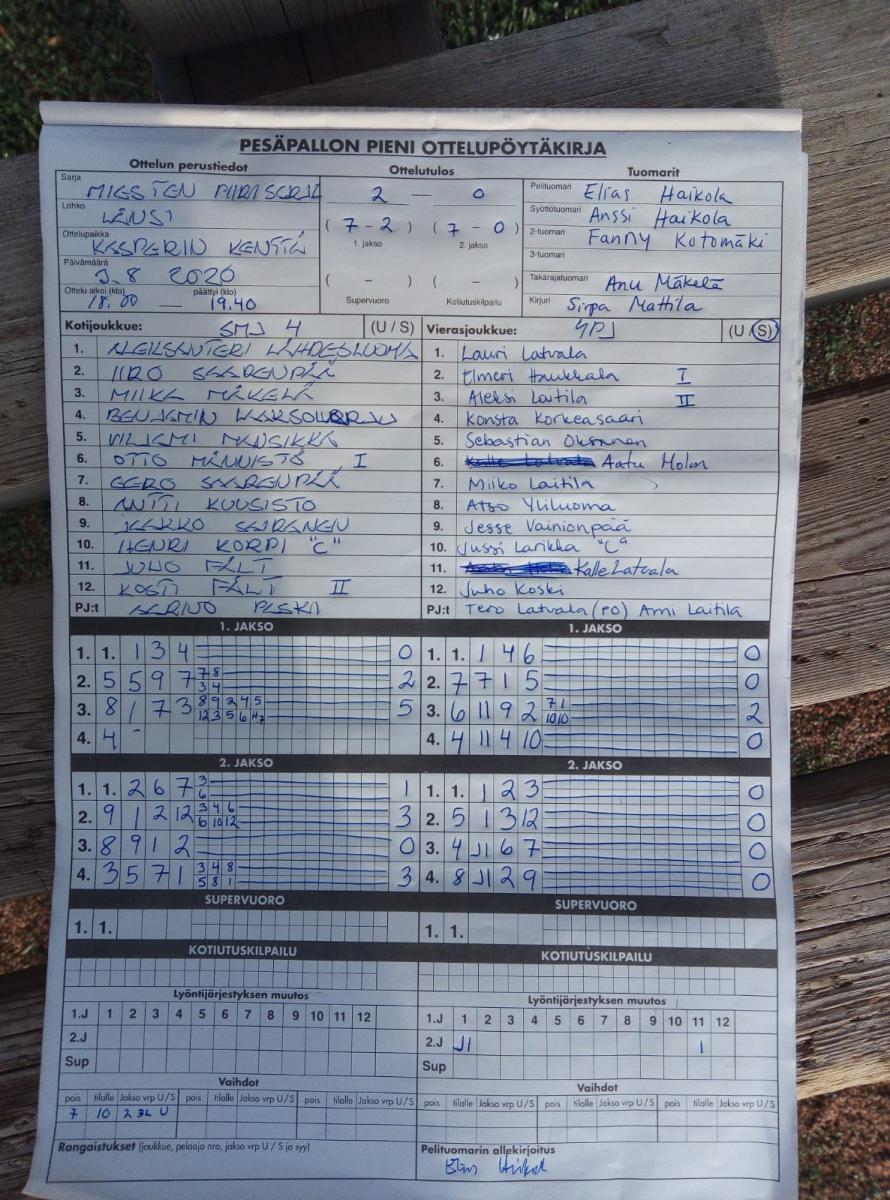 PESÄPALLON PIENI OTTELUPÖYTÄKIRJA
Ottelun perustiedot
Ottelutulos
Tuomarit
Sarja MIESTEN PIIRISARJA
Lohko LÄNSI
Ottelupaikka KASPERIN KENTTÄ
Päivämäärä 3.8 2020
Ottelu alkoi (klo) päättyi (klo)
18.00 — 19.40
2 — 0
( 7 - 2 ) ( 7 - 0 )
1. jakso 2. jakso
( – ) ( – )
Supervuoro Kotiutuskilpailu
Pelituomari Elias Haikola
Syöttötuomari Anssi Haikola
2-tuomari Fanny Kotomäki
3-tuomari
Takarajatuomari Anu Mäkelä
Kirjuri Sirpa Mattila
Kotijoukkue: SMJ 4 (U / S)
1. ALEKSANTERI LÄHDESLUOMA
2. IIRO SAARENPÄÄ
3. MIIKA MÄKELÄ
4. BENJAMIN
5. VILJAMI MANSIKKA
6. OTTO MÄNNISTÖ I
7. EERO SAARENPÄÄ
8. ANTTI KUUSISTO
9. JAAKKO SAIRANEN
10. HENRI KORPI "C"
11. JUHO FÄLT
12. KOSTI FÄLT II
PJ:t
Vierasjoukkue: YPJ (U / S)
1. Lauri Latvala
2. Elmeri Haukkala I
3. Aleksi Laitila II
4. Konsta Korkeasaari
5. Sebastian Oksanen
6. Kalle Latvala Aatu
7. Miiko Laitila
8. Atso Yliluoma
9. Jesse Vainionpää
10. Jussi Larikka "C"
11. Kalle Latvala
12. Juho Koski
PJ:t Tero Latvala (PO) Ami Laitila
1. JAKSO
1. 1. 1 3 4 0
2. 5 5 9 7 7 8 2
3 4
3. 8 1 7 3 8 9 2 4 5 5
12 3 5 6
4. 4 -
1. JAKSO
1. 1. 1 4 6 0
2. 7 7 1 5 0
3. 6 11 9 2 7 1 2
10 10
4. 4 11 4 10 0
2. JAKSO
1. 1. 2 6 7 3 1
6
2. 9 1 2 12 3 4 6 3
6 10 12
3. 8 9 1 2 0
4. 3 5 7 1 3 4 8 3
5 8 1
2. JAKSO
1. 1. 1 2 3 0
2. 5 1 3 12 0
3. 4 J1 6 7 0
4. 8 J1 2 9 0
SUPERVUORO
1. 1.
SUPERVUORO
1. 1.
KOTIUTUSKILPAILU
KOTIUTUSKILPAILU
Lyöntijärjestyksen muutos
1.J 1 2 3 4 5 6 7 8 9 10 11 12
2.J
Sup
Lyöntijärjestyksen muutos
1.J 1 2 3 4 5 6 7 8 9 10 11 12
2.J J1 1
Sup
Vaihdot
pois tilalle Jakso vrp U / S pois tilalle Jakso vrp U / S pois tilalle Jakso vrp U / S
7 10 2 U
Vaihdot
pois tilalle Jakso vrp U / S pois tilalle Jakso vrp U / S pois tilalle Jakso vrp U / S
Rangaistukset (joukkue, pelaaja nro, jakso vrp U / S ja syy)
Pelituomarin allekirjoitus